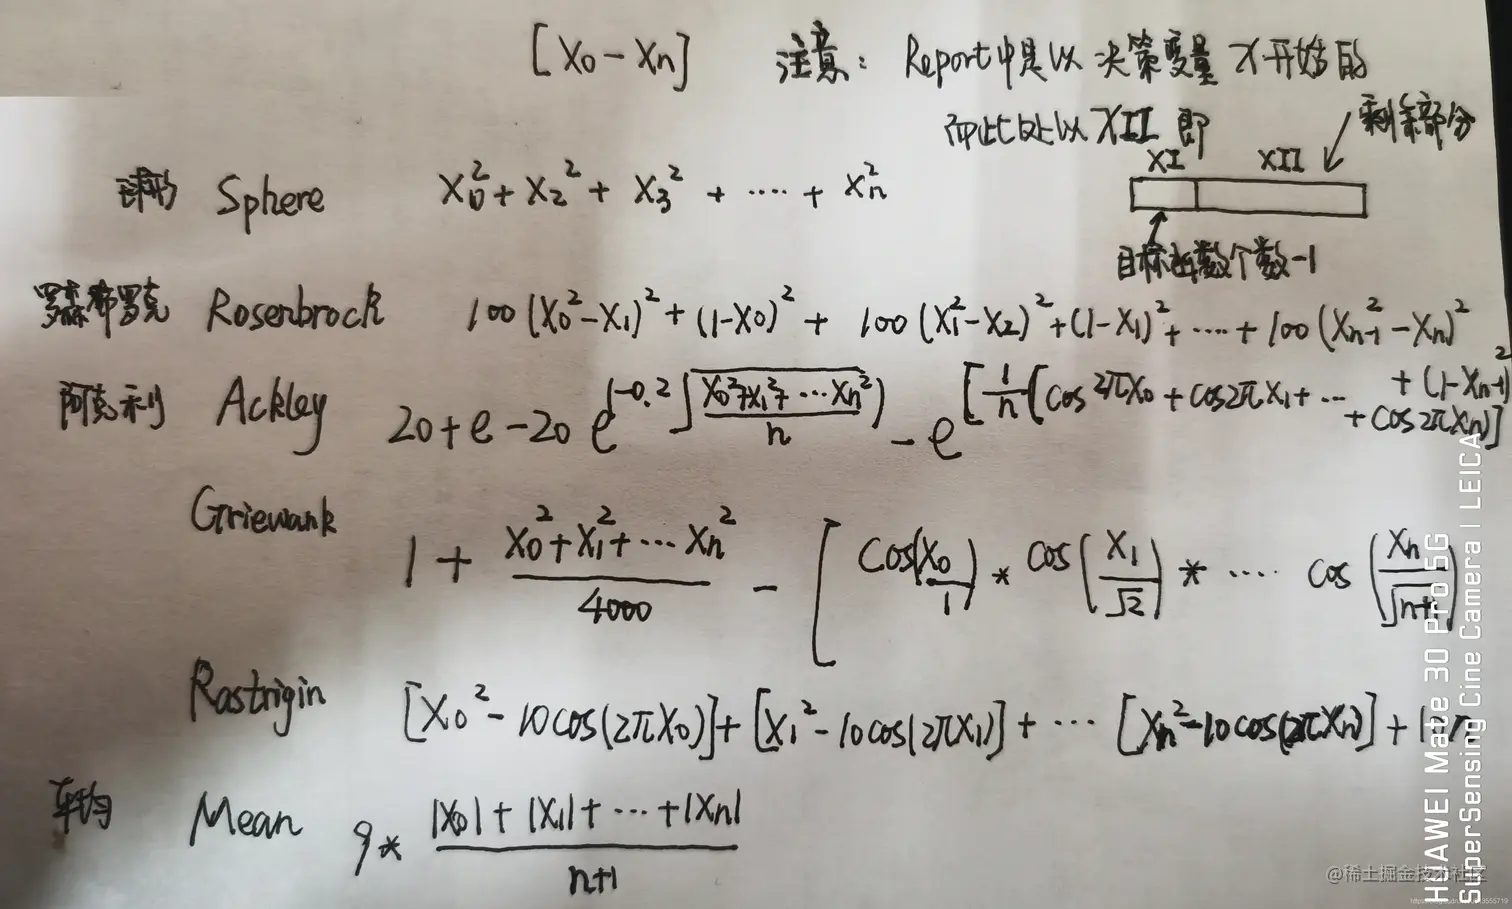 [X0 - Xn] 注意: Report中是以决策变量X开始的
而此处以XII即
剩余部分
XI XII
目标函数个数-1
球形 Sphere X0² + X2² + X3² + ···· + Xn²
罗森布罗克 Rosenbrock 100(X0²-X1)² + (1-X0)² + 100(X1²-X2)² + (1-X1)² + ···· + 100(Xn-1²-Xn)² + (1-Xn-1)²
阿克利 Ackley 20+e-20 e^(-0.2√((X0²+X1²+···Xn²)/n)) - e^[1/n(cos2πX0 + cos2πX1 + ··· + cos2πXn)]
Griewank 1 + (X0²+X1²+···Xn²)/4000 - [cos(X0/1) * cos(X1/√2) * ···· cos(Xn/√n+1)
Rastrigin [X0²-10cos(2πX0)] + [X1²-10cos(2πX1)] + ··· [Xn²-10cos(2πXn)] +
平均 Mean 9* (|X0|+|X1|+···+|Xn|)/(n+1)
HUAWEI Mate 30 Pro 5G
SuperSensing Cine Camera | LEICA
@稀土掘金技术社区